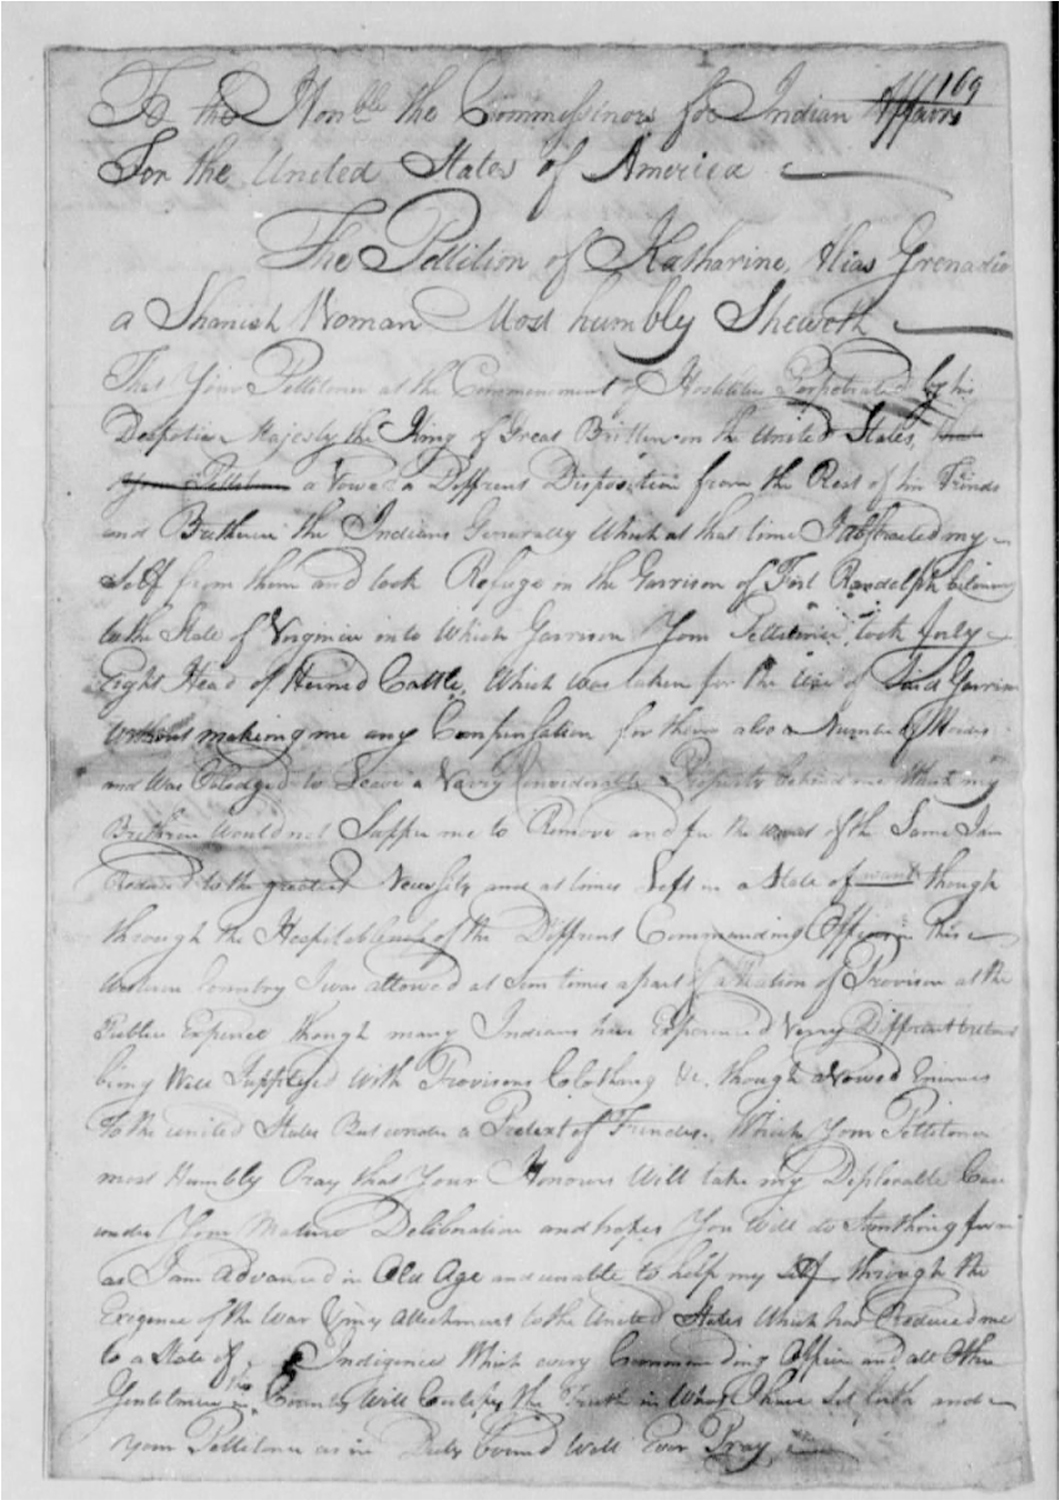 169
To the Honble the Commissinors for Indian Affairs
For the United States of America
The Pettition of Katharine, Alias Grenadier
a Shanish Woman Most humbly Sheweth
That Your Pettitoner at the Commencement of Hostilities Perpetrated by his
Despotic Majesty the King of Great Britten on the United States, that
your Pettitioner a Vowed a Diffrent Disposition from the Rest of his Frinds
and Bretheren the Indians Generally Which at that time I abstracted my
Self from them and took Refuge in the Garrison of Fort Randolph belonging
to the State of Virginia into Which Garrison Your Pettitioner took forty
Eight Head of Horned Cattle, Which was taken for the Use of Said Garrison
without making me any Compensation for them also a Number of Horses
and Was Obledged to Leave a Varey Considerable Property behind me Which my
Brethren Would not Suffer me to Remove and for the want of the Same I am
Reduced to the greatest Necessity and at times Left in a State of want though
through the Hospitableness of the Diffrent Commanding Officers in this
Western Country I was allowed at Som times a part of a Ration of Provision at the
Publick Expence though many Indians have Experienced Verry Different treatment
being Well Supplyed with Provisons Clothing &c. though avowed Enimies
To the united States But under a Pretext of Frindes. Which Your Pettitoner
most Humbly Pray that Your Honours Will take my Deplorable Case
under Your Mature Deliberation and hopes You Will do Somthing for me
as I am advanced in Old Age and unable to help my Self through the
Exigence of the War & my Attachment to the United States Which has Reduced me
to a State of Indigence Which every Commanding Officer and all Other
Gentelmen in this Country Will Certify the Truth in What I have Set forth and
your Pettitoner as in Duty bound Will Ever Pray